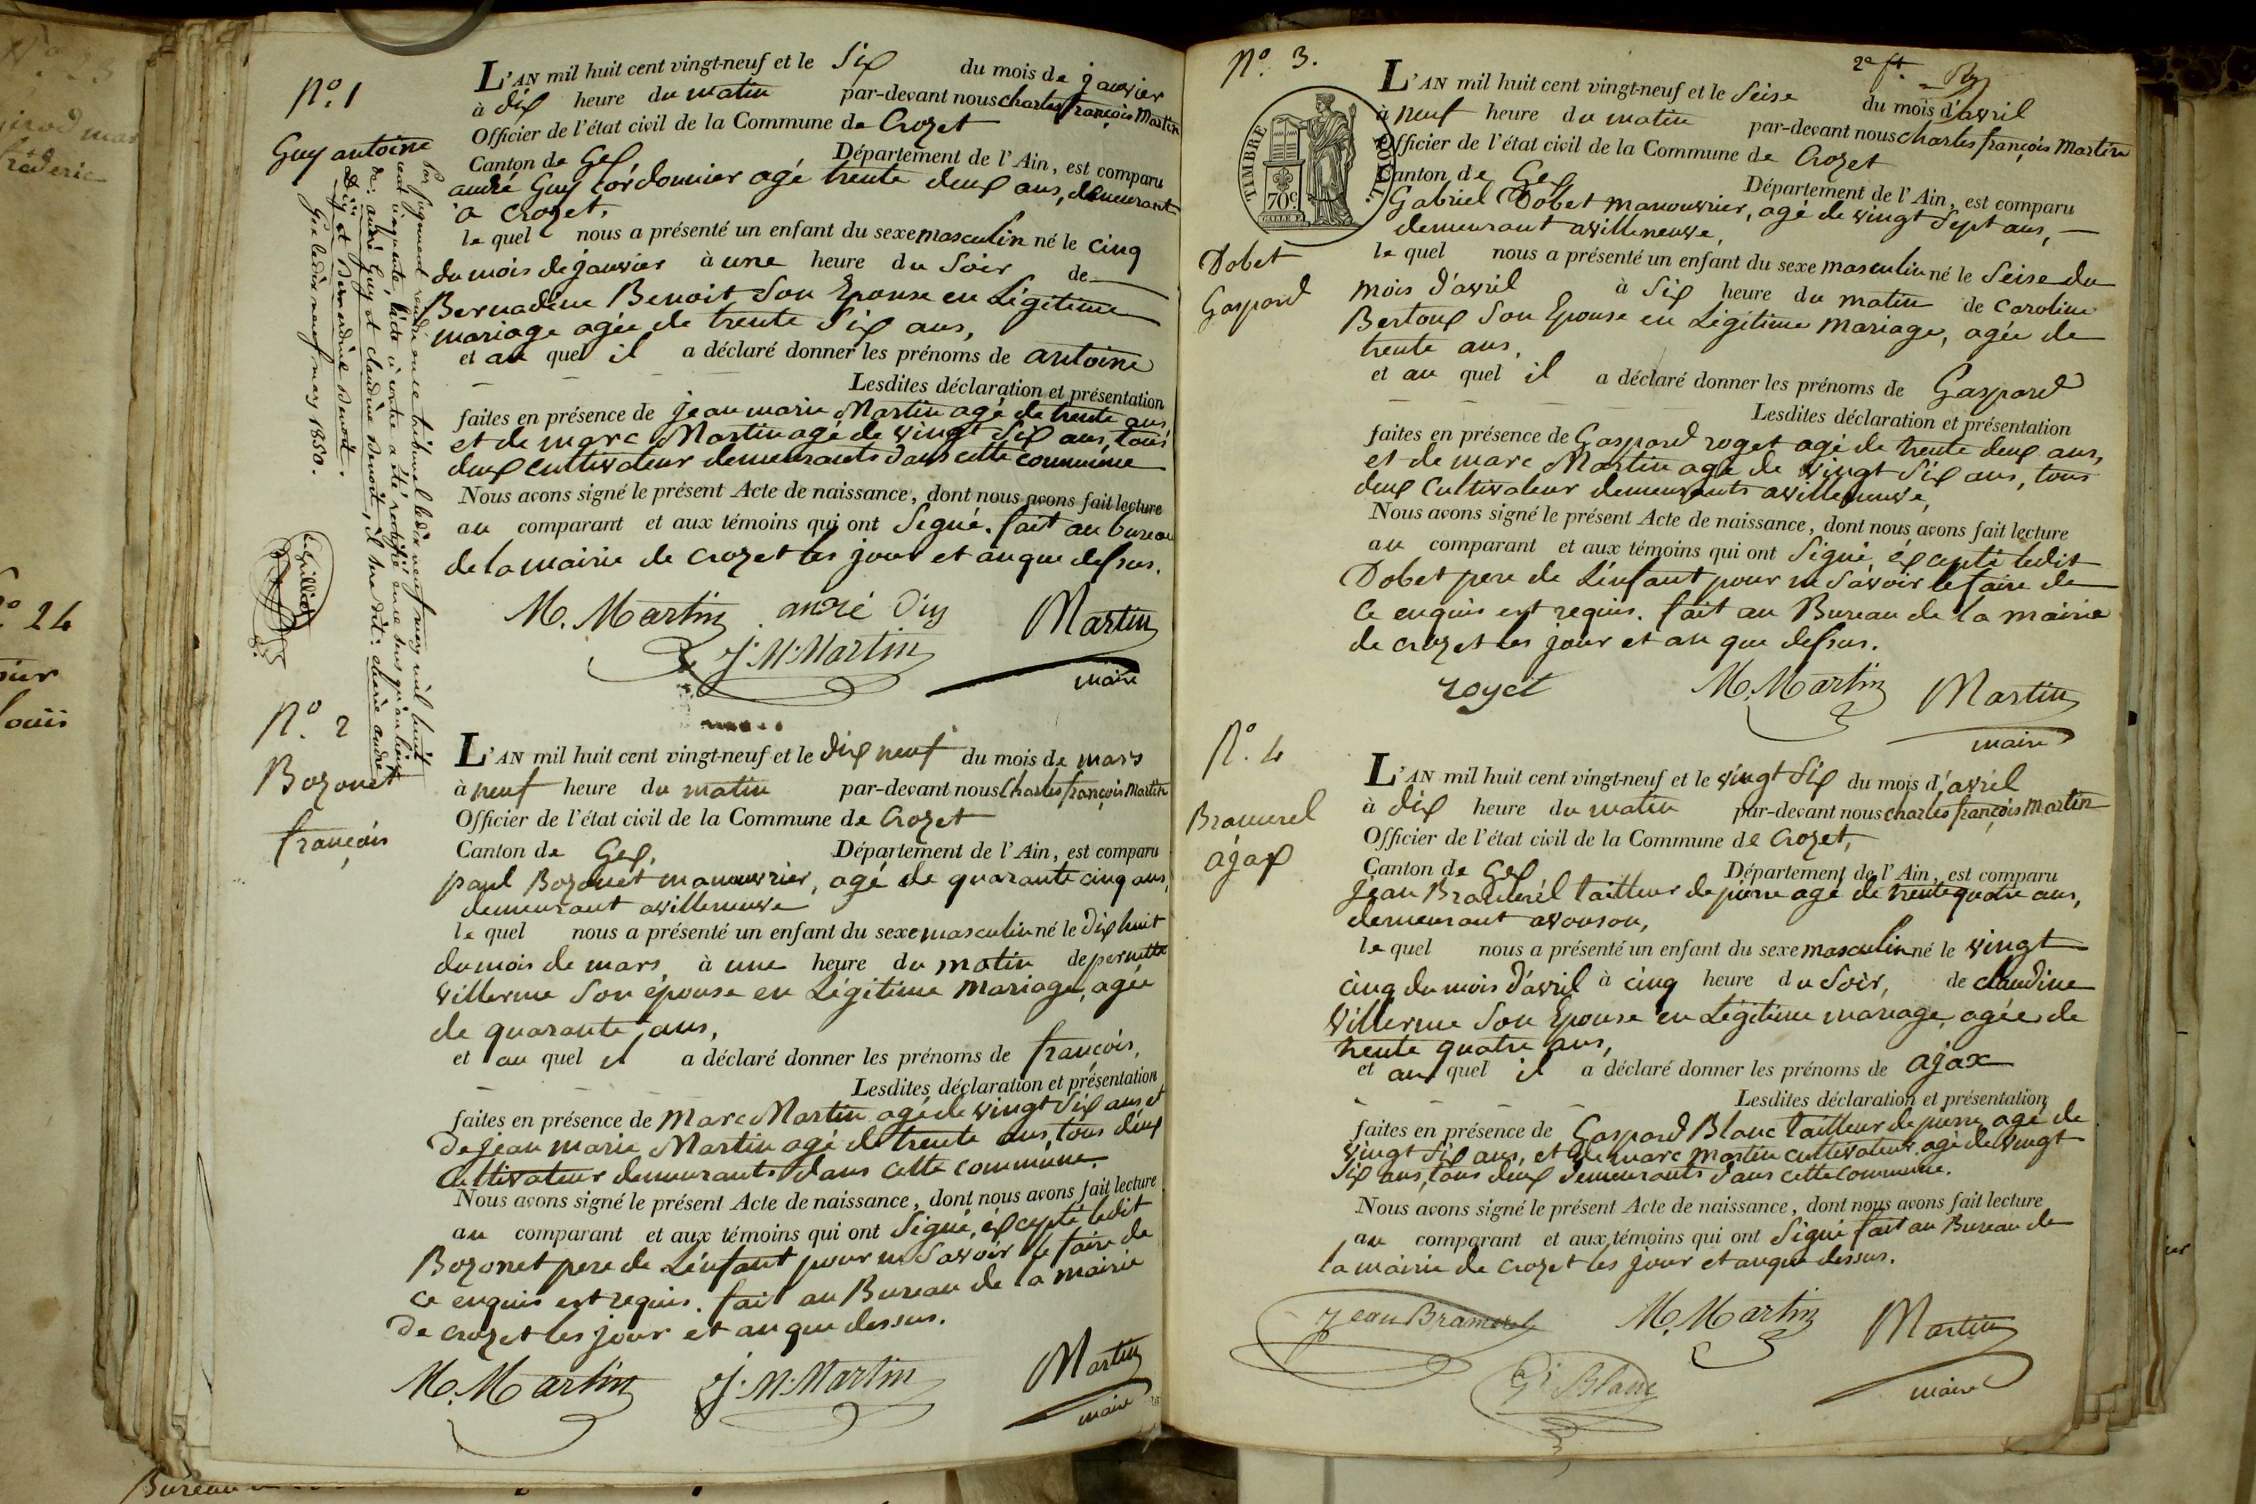 N.º 1
Guy antoine
L'AN mil huit cent vingt-neuf et le Six du mois de janvier
à dix heure du matin par-devant nous charles françois Martin
Officier de l'état civil de la Commune de Crozet
Canton de Gex Département de l'Ain, est comparu
andré Guy cordonnier agé trente deux ans, demeurant
a crozet,
le quel nous a présenté un enfant du sexe masculin né le cinq
du mois de janvier à une heure du Soir de
Bernadine Benoit Son Epouse en Légitime
mariage agée de trente Six ans,
et au quel il a déclaré donner les prénoms de antoine
Lesdites déclaration et présentation
faites en présence de jean marie Martin agé de trente ans
et de marc Martin agé de vingt Six ans, tous
deux cultivateur demeurants dans cette commune
Nous avons signé le présent Acte de naissance, dont nous avons fait lecture
au comparant et aux témoins qui ont Signé. fait au bureau
de la mairie de crozet les jour et an que dessus.
M. Martin andré Guy Martin
J. M. Martin
maire
Par jugement rendu en ce tribunal le dix neuf may mil huit
cent cinquante, l'acte ci contre a été rectifié en ce sens qu'au lieu
de: andré Guy et claudine Benoit, il sera dit:
Guy et Bernardine Benoit.
Gex le dix neuf may 1850.
N.º 2
Bozonet
françois
L'AN mil huit cent vingt-neuf et le dix neuf du mois de mars
à neuf heure du matin par-devant nous Charles françois Martin
Officier de l'état civil de la Commune de Crozet
Canton de Gex, Département de l'Ain, est comparu
paul Bozonet manouvrier, agé de quarante cinq ans,
demeurant a villeneuve
le quel nous a présenté un enfant du sexe masculin né le dix huit
du mois de mars, à une heure du matin de pernette
Villerme Son épouse en Légitime Mariage, agée
de quarante ans,
et au quel il a déclaré donner les prénoms de françois,
Lesdites déclaration et présentation
faites en présence de Marc Martin agé de vingt Six ans et
de jean marie Martin agé de trente ans, tous deux
cultivateur demeurants dans cette commune.
Nous avons signé le présent Acte de naissance, dont nous avons fait lecture
au comparant et aux témoins qui ont Signé, éxcepté ledit
Bozonet pere de L'énfant pour ne Savoir le faire de
ce enquis est requis. fait au Bureau de la mairie
de crozet les jour et an que dessus.
M. Martin J. M. Martin Martin
maire
N.º 3.
2e ft.
TIMBRE ROYAL
70c
L'AN mil huit cent vingt-neuf et le Seise du mois d'avril
à neuf heure du matin par-devant nous charles françois Martin
Officier de l'état civil de la Commune de Crozet
Canton de Gex Département de l'Ain, est comparu
Gabriel Dobet manouvrier, agé de vingt Sept ans,
demeurant a villeneuve,
Dobet
Gaspard
le quel nous a présenté un enfant du sexe masculin né le Seise du
mois d'avril à Six heure du matin de caroline
Bertoux Son Epouse en Légitime Mariage, agée de
trente ans,
et au quel il a déclaré donner les prénoms de Gaspard
Lesdites déclaration et présentation
faites en présence de Gaspard roget agé de trente deux ans,
et de marc Martin agé de vingt Six ans, tous
deux Cultivateur demeurants a villeneuve,
Nous avons signé le présent Acte de naissance, dont nous avons fait lecture
au comparant et aux témoins qui ont Signé, éxcepté ledit
Dobet pere de L'énfant pour ne Savoir le faire de
ce enquis est requis. fait au Bureau de la mairie
de crozet les jour et an que dessus.
royet M. Martin Martin
maire
N.º 4
Bramerel
ajax
L'AN mil huit cent vingt-neuf et le vingt Six du mois d'avril
à dix heure du matin par-devant nous charles françois Martin
Officier de l'état civil de la Commune de Crozet,
Canton de Gex, Département de l'Ain, est comparu
jean Bramerel tailleur de pierre agé de trente quatre ans,
demeurant avouson,
le quel nous a présenté un enfant du sexe masculin né le vingt
cinq du mois d'avril à cinq heure du Soir, de claudine
Villerme Son Epouse en Légitime mariage, agée de
trente quatre ans,
et au quel il a déclaré donner les prénoms de ajax
Lesdites déclaration et présentation
faites en présence de Gaspard Blanc tailleur de pierre agé de
vingt Six ans, et de marc Martin cultivateur agé de vingt
Six ans, tous deux demeurants dans cette commune.
Nous avons signé le présent Acte de naissance, dont nous avons fait lecture
au comparant et aux témoins qui ont Signé fait au Bureau de
la mairie de crozet les jour et an que dessus.
Jean Bramerel M. Martin Martin
G. Blanc
maire